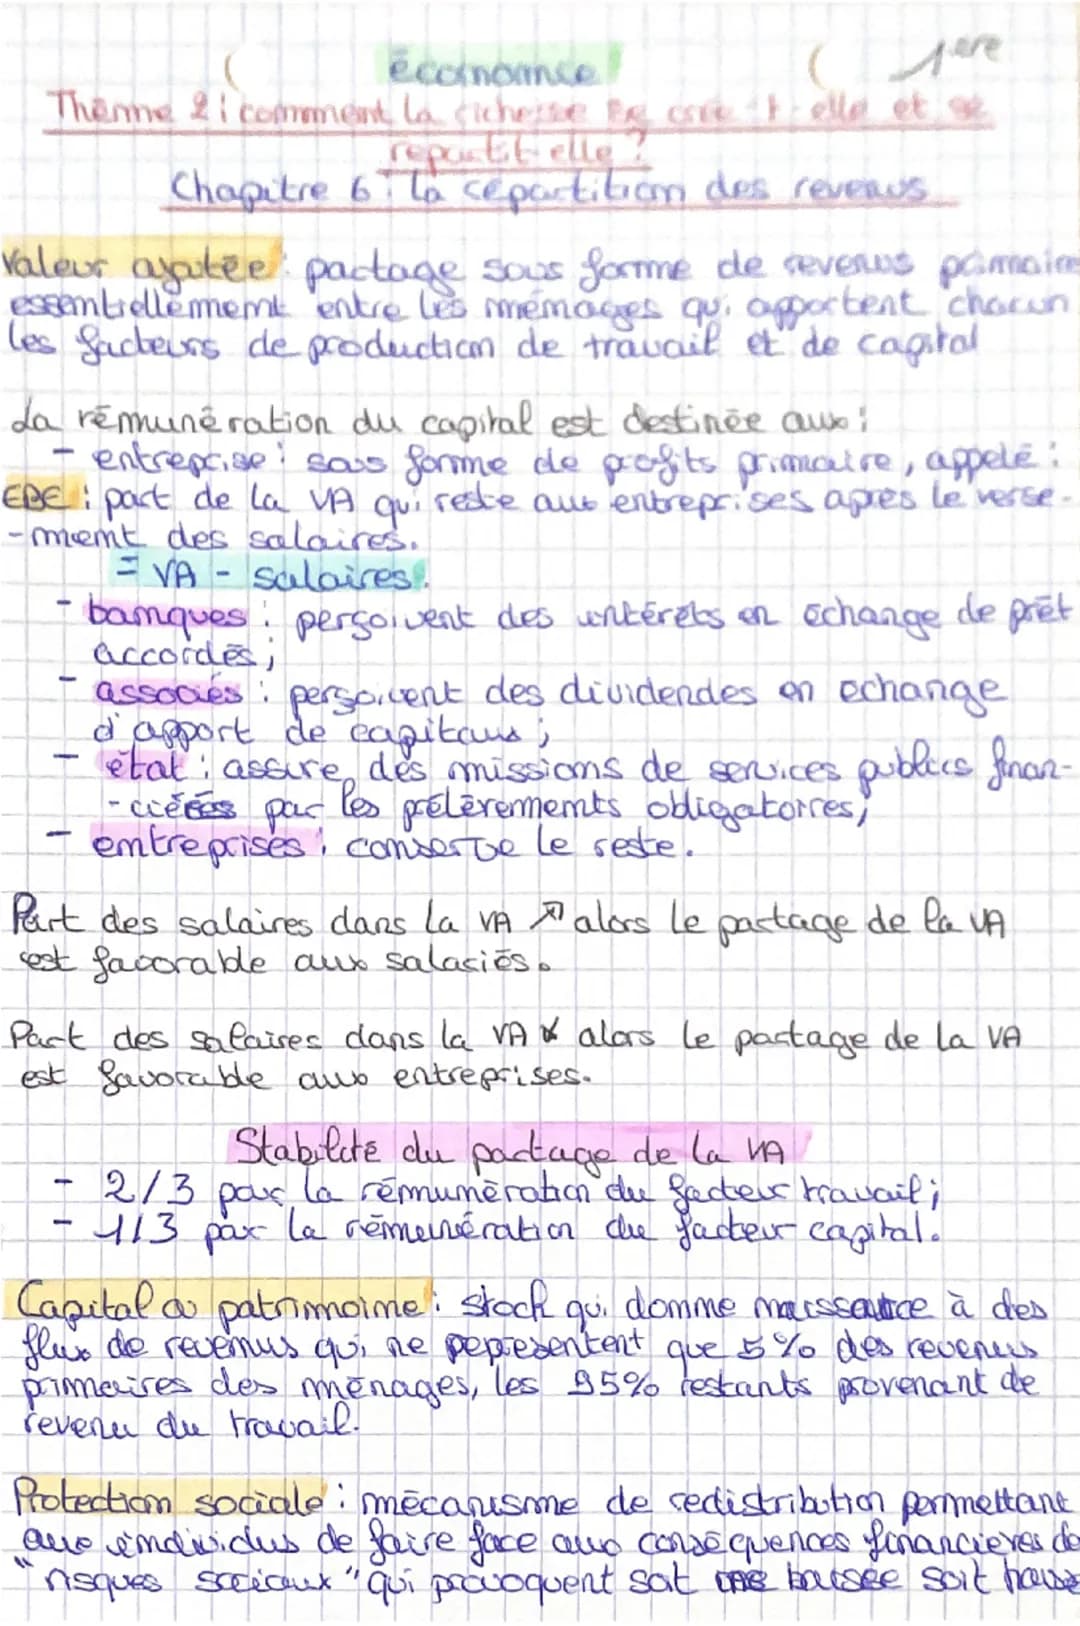 économie 1ere
Thème 2 : comment la richesse se crée-t-elle et se
repartit-elle ?
Chapitre 6 : la répartition des revenus
Valeur ajoutée : partage sous forme de revenus primaire
essentiellement entre les ménages qui apportent chacun
les facteurs de production de travail et de capital
La rémunération du capital est destinée aux :
- entreprise : sous forme de profits primaire, appelé :
EBE : part de la VA qui reste aux entreprises après le verse-
-ment des salaires.
= VA - salaires.
- banques : perçoivent des intérêts en échange de prêt
accordés ;
- associés : perçoivent des dividendes en echange
d'apport de capitaux ;
- état : assure des missions de services publics finan-
-ciérés par les prélèvements obligatoires ;
- entreprises : conserve le reste.
Part des salaires dans la VA ↗ alors le partage de la VA
est favorable aux salariés.
Part des salaires dans la VA ↘ alors le partage de la VA
est favorable aux entreprises.
Stabilité du partage de la VA
- 2/3 par la rémunération du facteur travail ;
- 1/3 par la rémunération du facteur capital.
Capital ou patrimoine : stock qui donne naissance à des
flux de revenus qui ne représentent que 5% des revenus
primaires des ménages, les 95% restants provenant de
revenu du travail.
Protection sociale : mécanisme de redistribution permettant
aux individus de faire face aux conséquences financières de
"risques sociaux" qui provoquent soit une baisse soit hausse